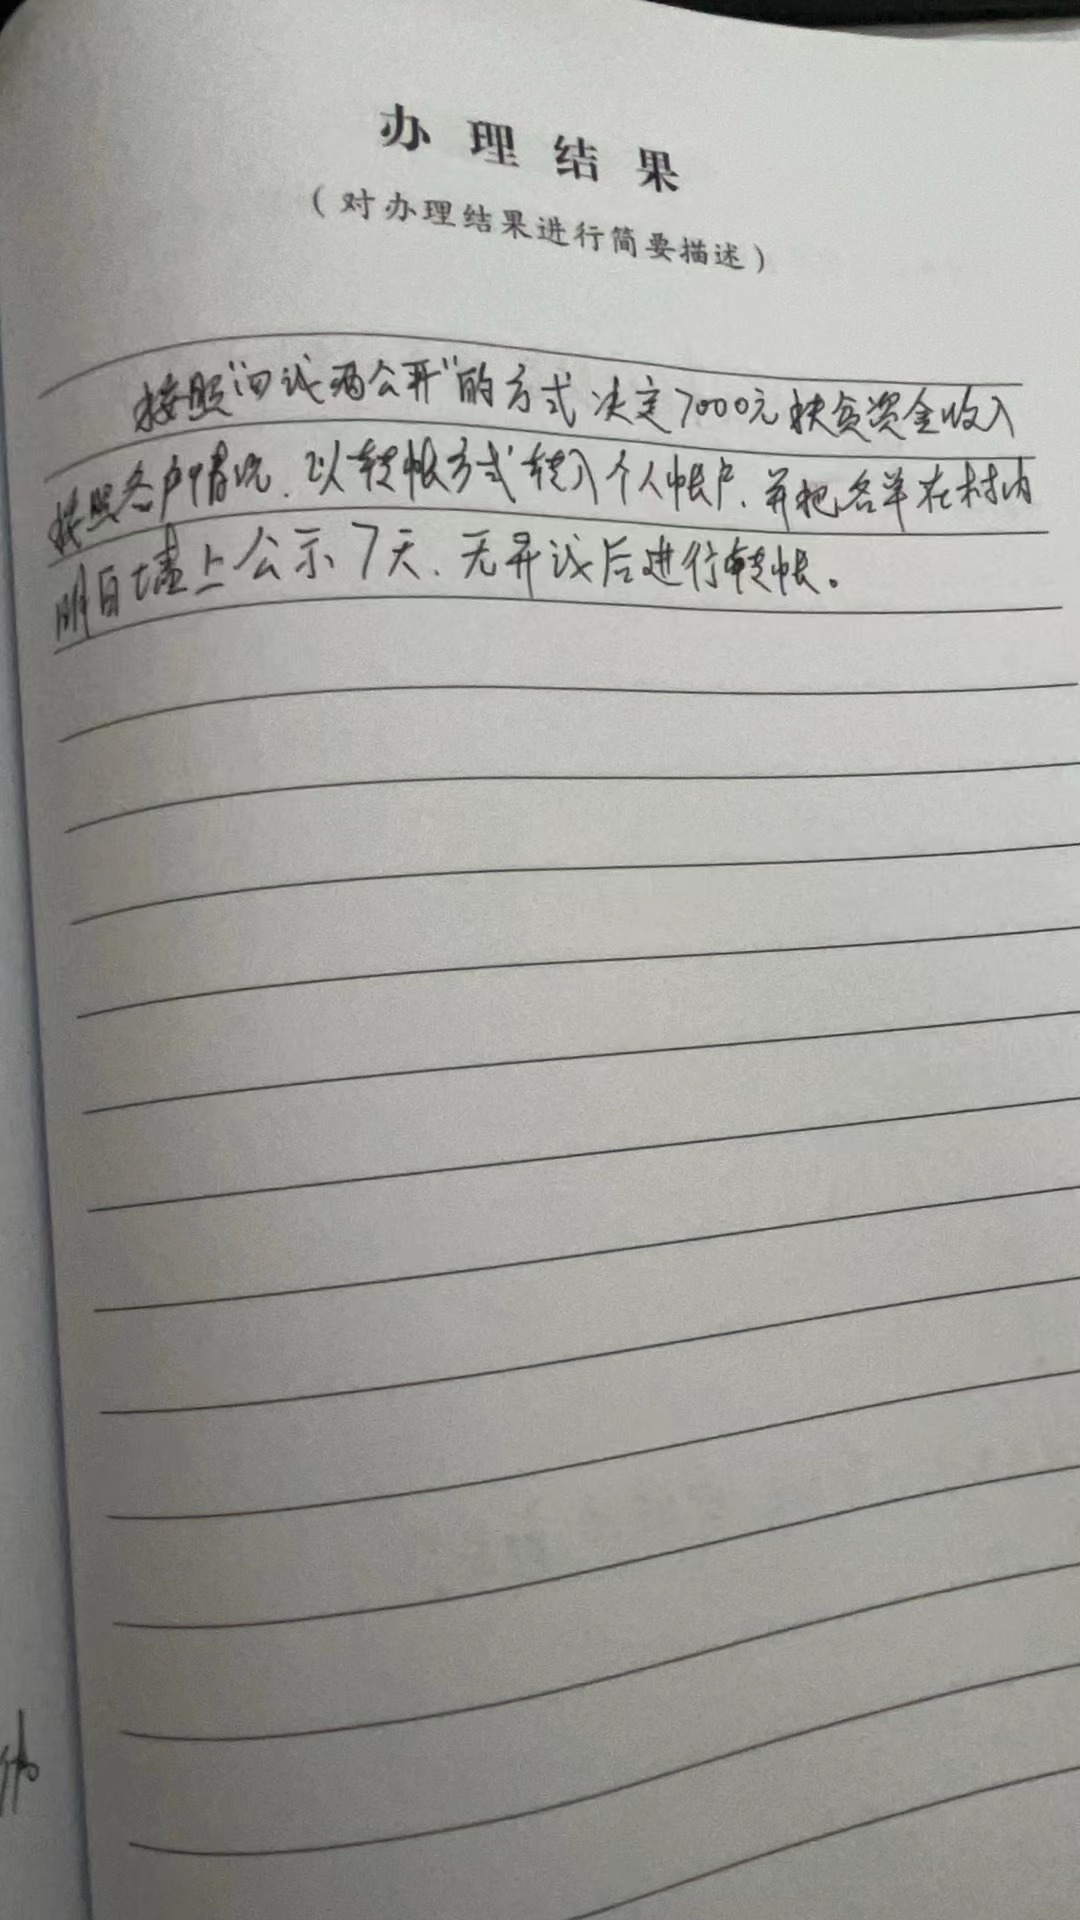 办理结果
（对办理结果进行简要描述）
按照“四议两公开”的方式决定7000元扶贫资金收入
按照各户情况、以转帐方式转入个人帐户、并把名单在村内
明白墙上公示7天、无异议后进行转帐。